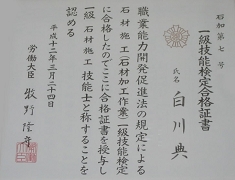 石加第七号
一級技能検定合格証書
氏名 白川典
職業能力開発促進法の規定による
石材施工(石材加工作業)一級技能検定
に合格したのでここに合格証書を授与し
一級石材施工技能士と称することを
認める
平成十二年三月二十四日
労働大臣 牧野隆守